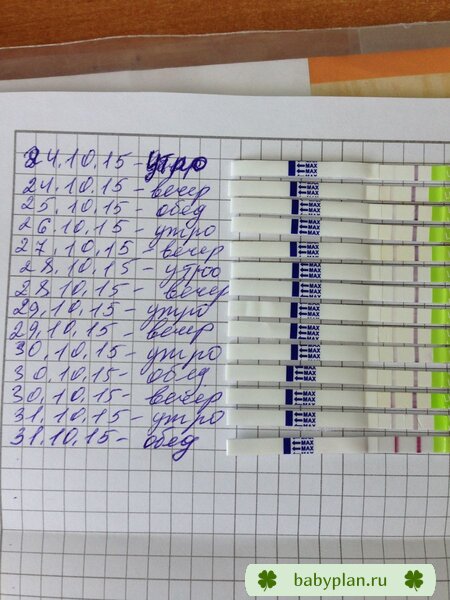 24.10.15 - утро
24.10.15 - вечер
25.10.15 - обед
26.10.15 - утро
27.10.15 - вечер
28.10.15 - утро
28.10.15 - вечер
29.10.15 - утро
29.10.15 - вечер
30.10.15 - утро
30.10.15 - обед
30.10.15 - вечер
31.10.15 - утро
31.10.15 - обед
MAX
MAX
MAX
MAX
MAX
MAX
MAX
MAX
MAX
MAX
MAX
MAX
MAX
MAX
babyplan.ru